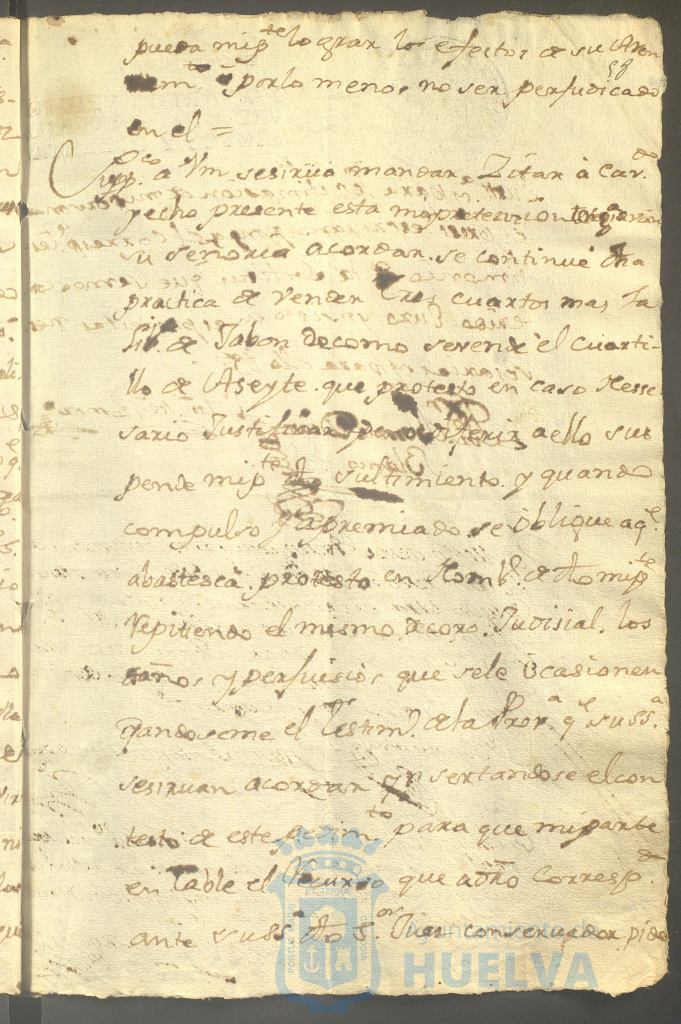 pueda mi p.te lograr los efectos de su Arren
dam.to ô por lo menos no ser perjudicado
58
en el =
Supp.co a Vm se sirva mandar Zitar à Cav.do
y echo presente esta mi pretencion
su señoria acordar se continue dha
practica de vender tres cuartos mas la
Lib.a de Jabon de como se vende el cuarti-
llo de Aseyte que protesto en caso Nesse
sario Justificar a ello sus
pende mi p.te dho sultimiento y quando
compulso y apremiado se oblique a q.e
abastesca protesto en Nomb.e de dho mi p.te
repitiendo el mismo decoro Judisial los
daños y perjuisios que sele ocasionen
dandoseme el Testim.o de la Prov.a q.e suss.a
se sirvan acordar ynsertandose el con
testo de este Pedim.to para que mi parte
en table el Recurso que a dro corresp.de
ante suss.a dho S.or Jues conservador pido
Ayuntamiento de
HUELVA